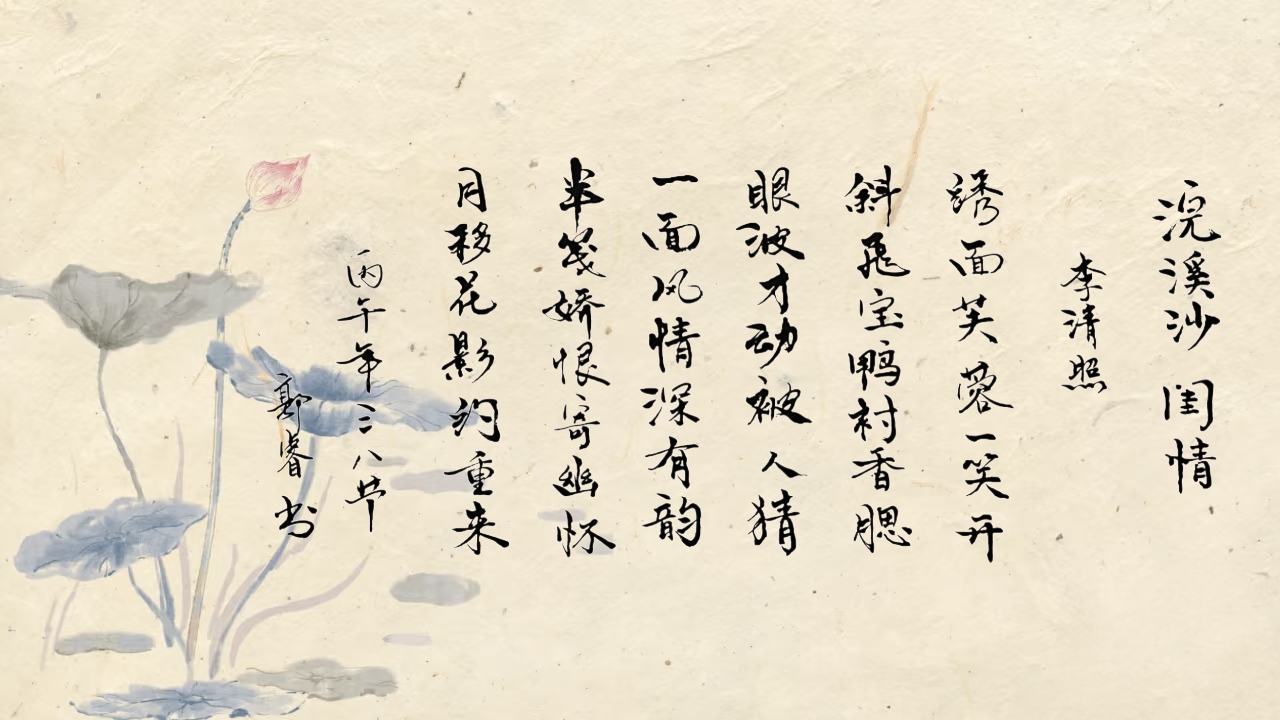 浣溪沙 闺情
李清照
誘面芙蓉一笑开
斜飛宝鸭衬香腮
眼波才动被人猜
一面风情深有韵
半笺娇恨寄幽怀
月移花影约重来
丙午年三八节
郭睿书